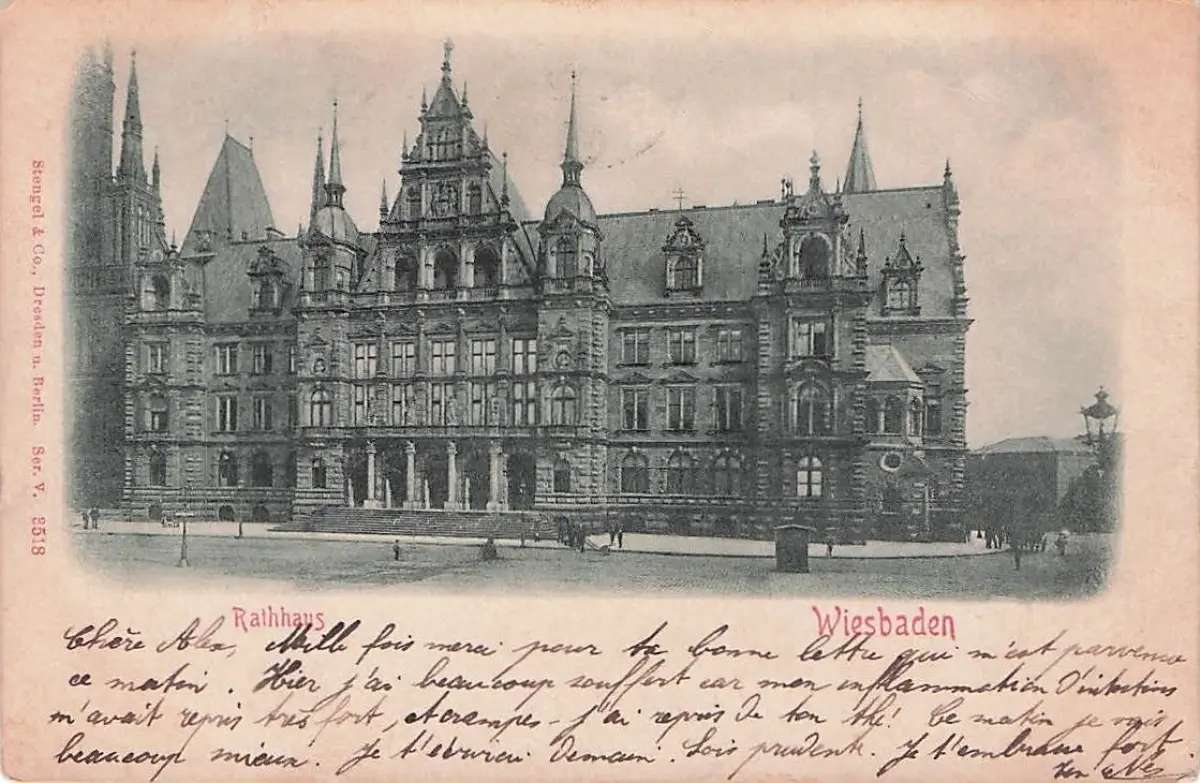 Stengel & Co., Dresden u. Berlin. Ser. V. 3518
Rathhaus
Wiesbaden
Chère Alex, Mille fois merci pour ta bonne lettre qui m'est parvenue
ce matin. Hier j'ai beaucoup souffert car mon inflammation d'intestins
m'avait repris très fort, et crampes - j'ai repris de ton thé! Ce matin je vais
beaucoup mieux. Je t'écrirai demain. Sois prudente. Je t'embrasse fort.